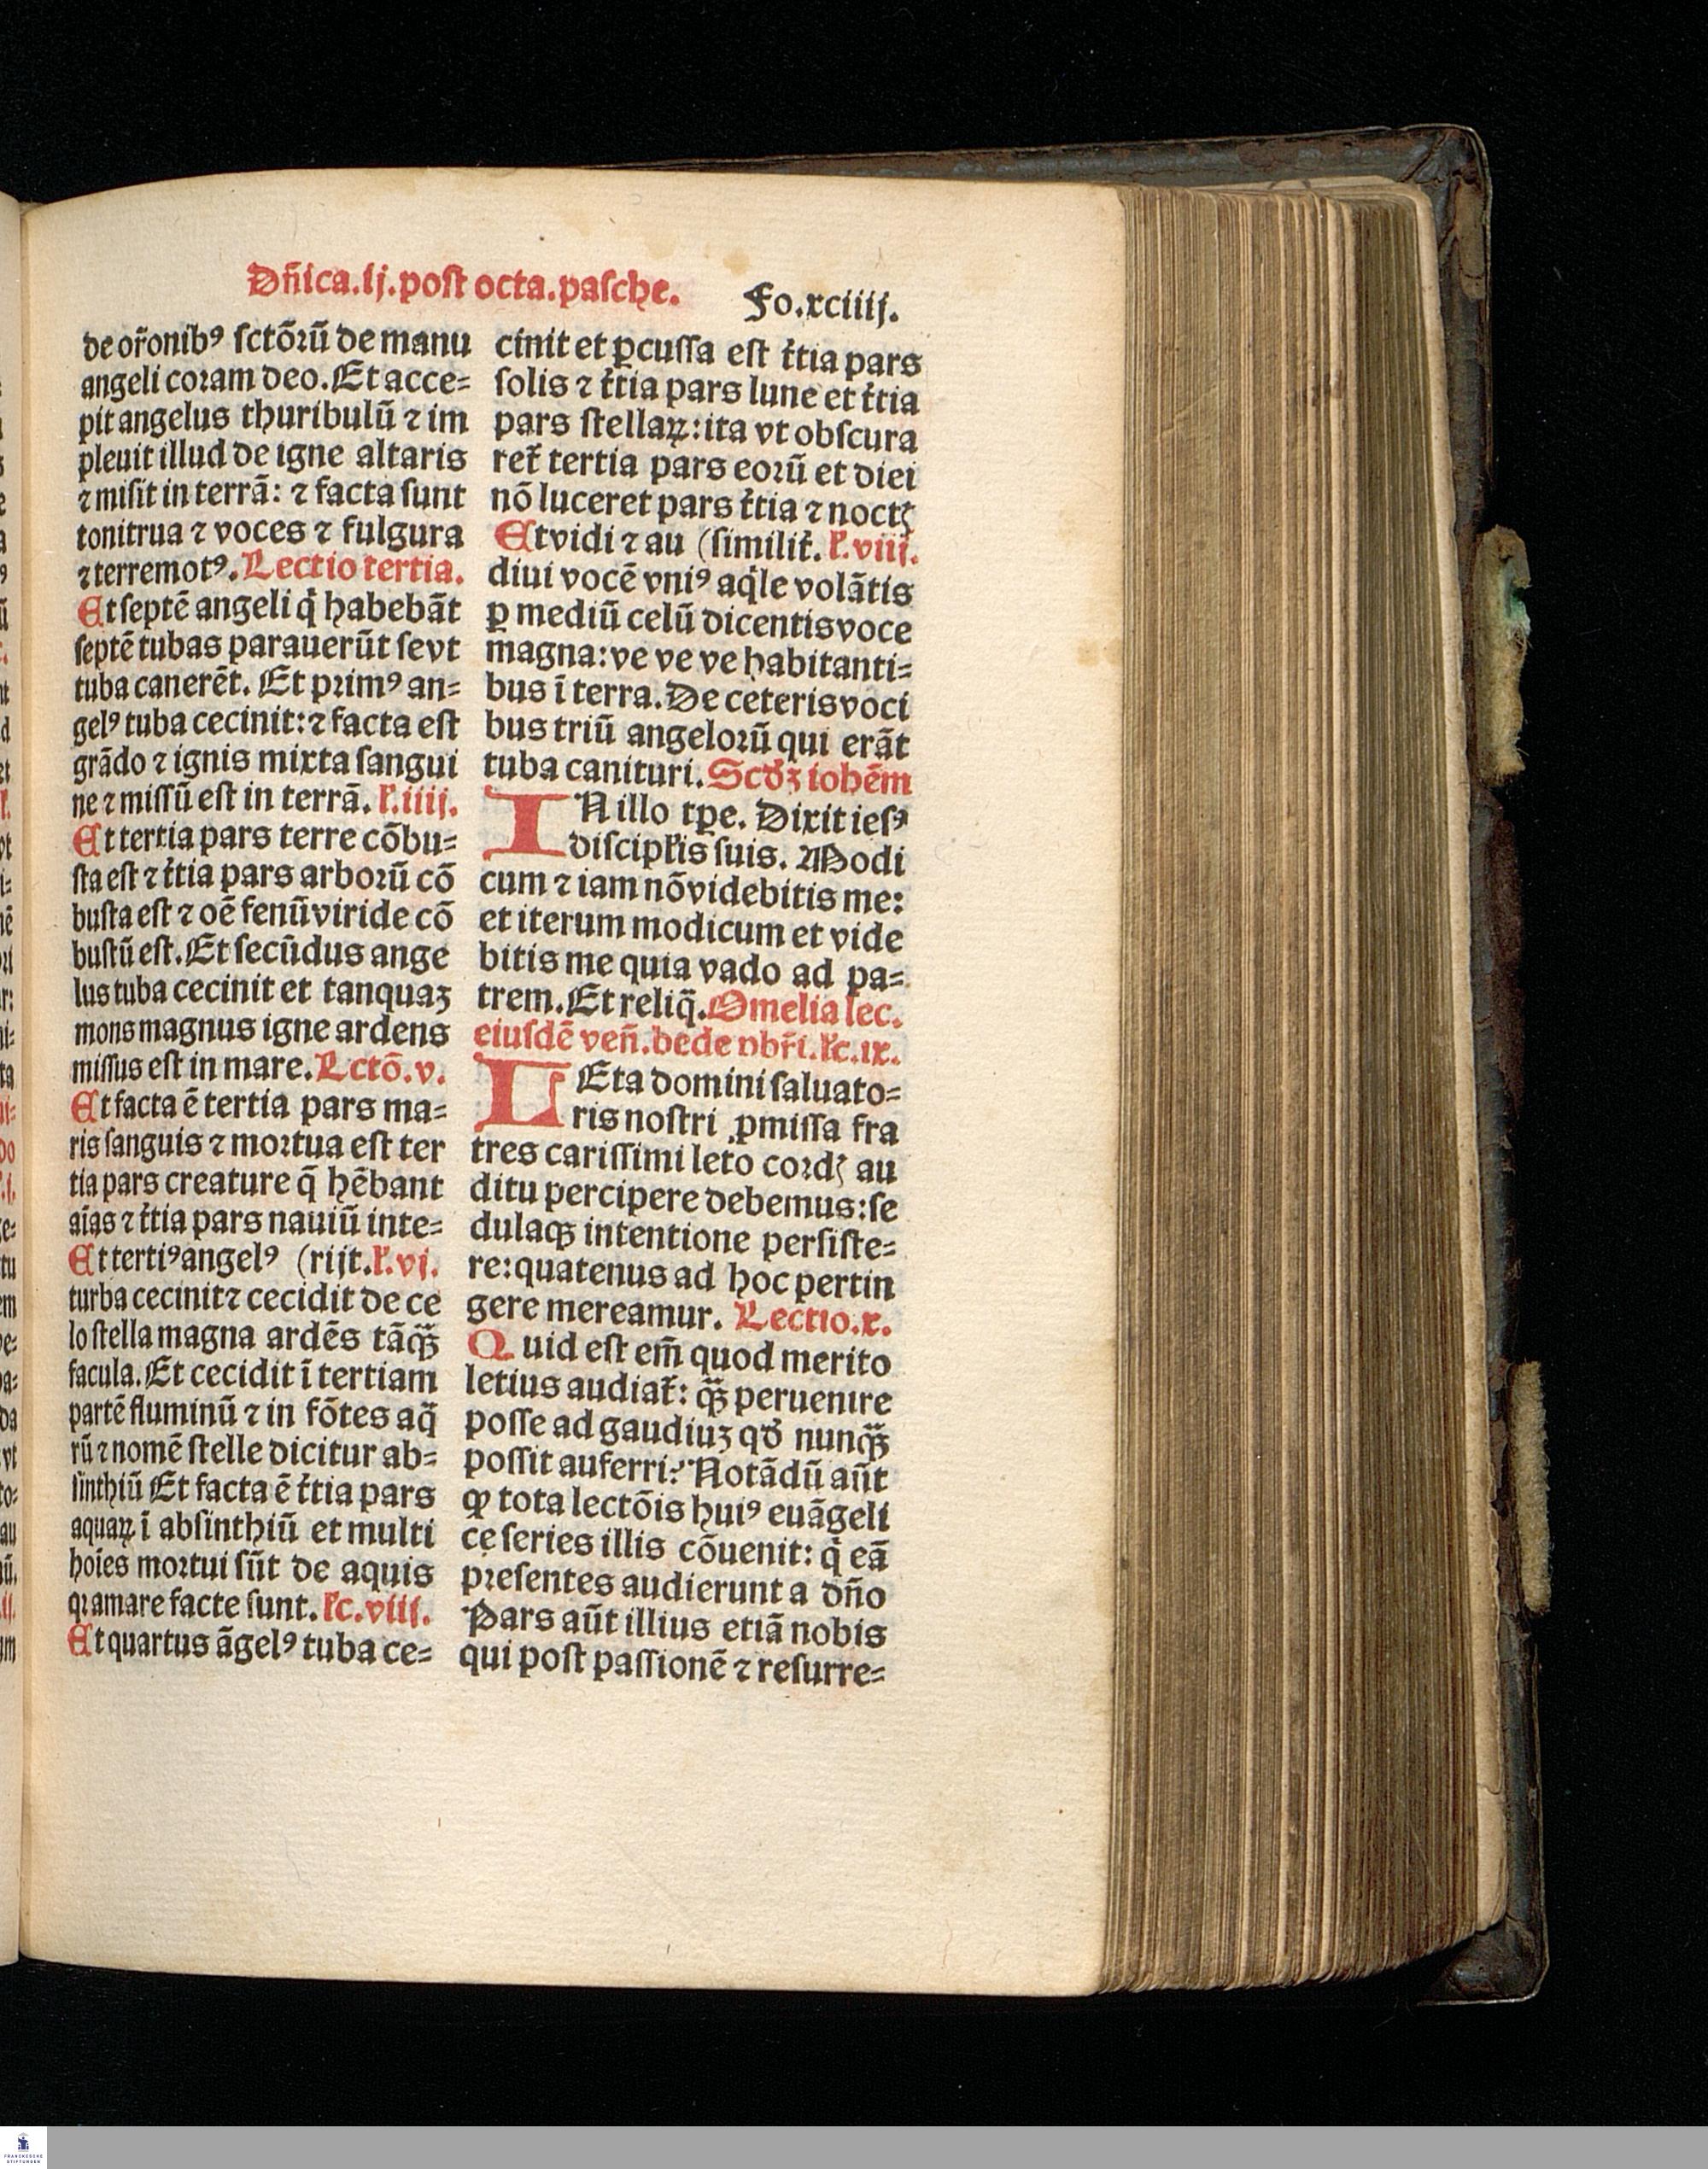 Dn̄ica.ij.post octa.pasche.
Fo.xciiij.
de or̄onibꝰ sctōꝛū de manu
angeli coꝛam deo. Et acce⸗
pit angelus thuribulū ⁊ im
pleuit illud de igne altaris
⁊ misit in terrā: ⁊ facta sunt
tonitrua ⁊ voces ⁊ fulgura
⁊ terremotꝰ. Lectio tertia.
Et septē angeli q̇ habebāt
septē tubas parauerūt se vt
tuba canerēt. Et pꝛimꝰ an⸗
gelꝰ tuba cecinit: ⁊ facta est
grādo ⁊ ignis mixta sangui
ne ⁊ missū est in terrā. ł.iiij.
Et tertia pars terre cōbu⸗
sta est ⁊ t̉tia pars arboꝛū cō
busta est ⁊ oē fenū viride cō
bustū est. Et secūdus ange
lus tuba cecinit et tanquaꝫ
mons magnus igne ardens
missus est in mare. Lctō.v.
Et facta ē tertia pars ma⸗
ris sanguis ⁊ moꝛtua est ter
tia pars creature q̄ hēbant
aīas ⁊ t̉tia pars nauiū inte⸗
Et tertiꝰ angelꝰ (rijt. ł.vj.
turba cecinit ⁊ cecidit de ce
lo stella magna ardēs tāqꝫ̄
facula. Et cecidit ī tertiam
partē fluminū ⁊ in fōtes aq̄
rū ⁊ nomē stelle dicitur ab⸗
sinthiū Et facta ē t̉tia pars
aquaꝝ ī absinthiū et multi
hoīes moꝛtui sūt de aquis
qꝛ amare facte sunt. łc.viij.
Et quartus āgelꝰ tuba ce⸗
cinit et ꝑcussa est t̉tia pars
solis ⁊ t̉tia pars lune et t̉tia
pars stellaꝝ: ita vt obscura
ret̉ tertia pars eoꝛū et diei
nō luceret pars t̉tia ⁊ noctꝭ
Et vidi ⁊ au (similit̉. ł.viij.
diui vocē vniꝰ aq̇le volātis
ꝑ mediū celū dicentis voce
magna: ve ve ve habitanti⸗
bus ī terra. De ceteris voci
bus triū angeloꝛū qui erāt
tuba canituri. Scd̓ꝫ iohēm
IN illo tꝑe. Dixit iesꝰ
discipłis suis. Modi
cum ⁊ iam nō videbitis me:
et iterum modicum et vide
bitis me quia vado ad pa⸗
trem. Et reliq̄. Omelia lec.
eiusdē ven̄. bede pbr̄i. łc.ix.
LEta domini saluato⸗
ris nostri ꝓmissa fra
tres carissimi leto coꝛdꝭ au
ditu percipere debemus: se
dulaqꝫ intentione persiste⸗
re: quatenus ad hoc pertin
gere mereamur. Lectio.x.
Quid est em̄ quod merito
letius audiat̉: qꝫ̄ peruenire
posse ad gaudiuꝫ qd̓ nunqꝫ̄
possit auferri? Notādū aūt
ꝙ tota lectōis huiꝰ euāgeli
ce series illis cōuenit: q̇ eā
pꝛesentes audierunt a dn̄o
Pars aūt illius etiā nobis
qui post passionē ⁊ resurre⸗
FRANCKESCHE
STIFTUNGEN